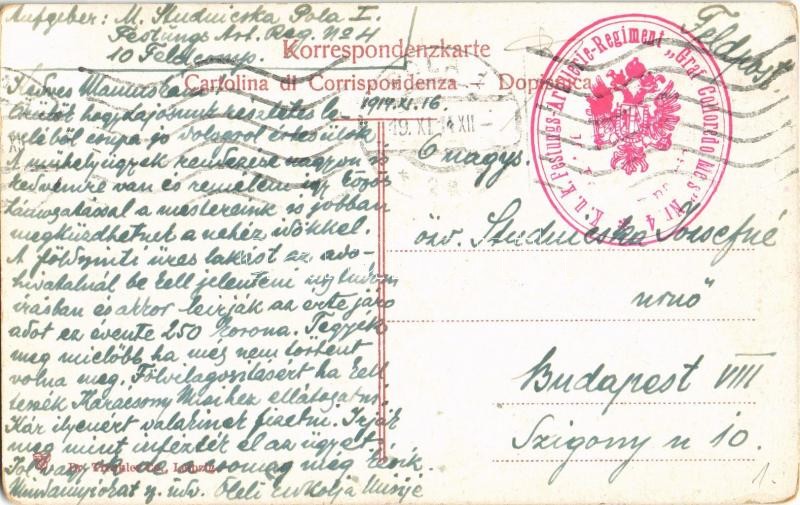 Aufgeber: M. Studnicska Pola I.
Festungs Art. Reg. No 4
10 Feldcomp.
Feldpost.
Korrespondenzkarte
Cartolina di Corrispondenza – Dopisnica
K. u. k. Festungs-Artillerie-Regiment „Graf Colloredo Mels" Nr 4
1914. XI. 16.
19. XI. 14 XII
Kedves Mamuskám
örülök hogy Lajosunk részletes le-
veléből csupa jó dologról értesülök.
A műhelyügyek rendezése nagyon is
kedvemre van és remélem így közös
támogatással a mestereink is jobban
megküzdhetnek a nehéz időkkel.
A földszinti üres lakást az adó-
hivatalnál be kell jelenteni úgy tudom
írásban és akkor leírják az érte járó
adót ez évente 250 korona. Tegyék
meg mielőbb ha még nem történt
volna meg. Fölvilágosításért ha kell
tessék Karácsony Misihez ellátogatni.
Kár ilyenért valakinek fizetni. Írják
meg mint intézték el az ügyet.
Jól vagyok a csomag még késik.
Mindannyiokat
Önagys.
özv. Studnicska Józsefné
úrnő
Budapest VIII
Szigony u 10.
1.